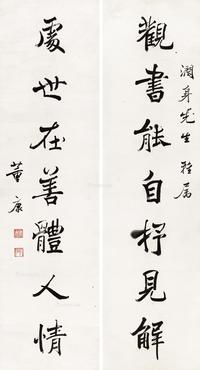 觀書能自抒見解
潤身先生 雅屬
處世在善體人情
董康